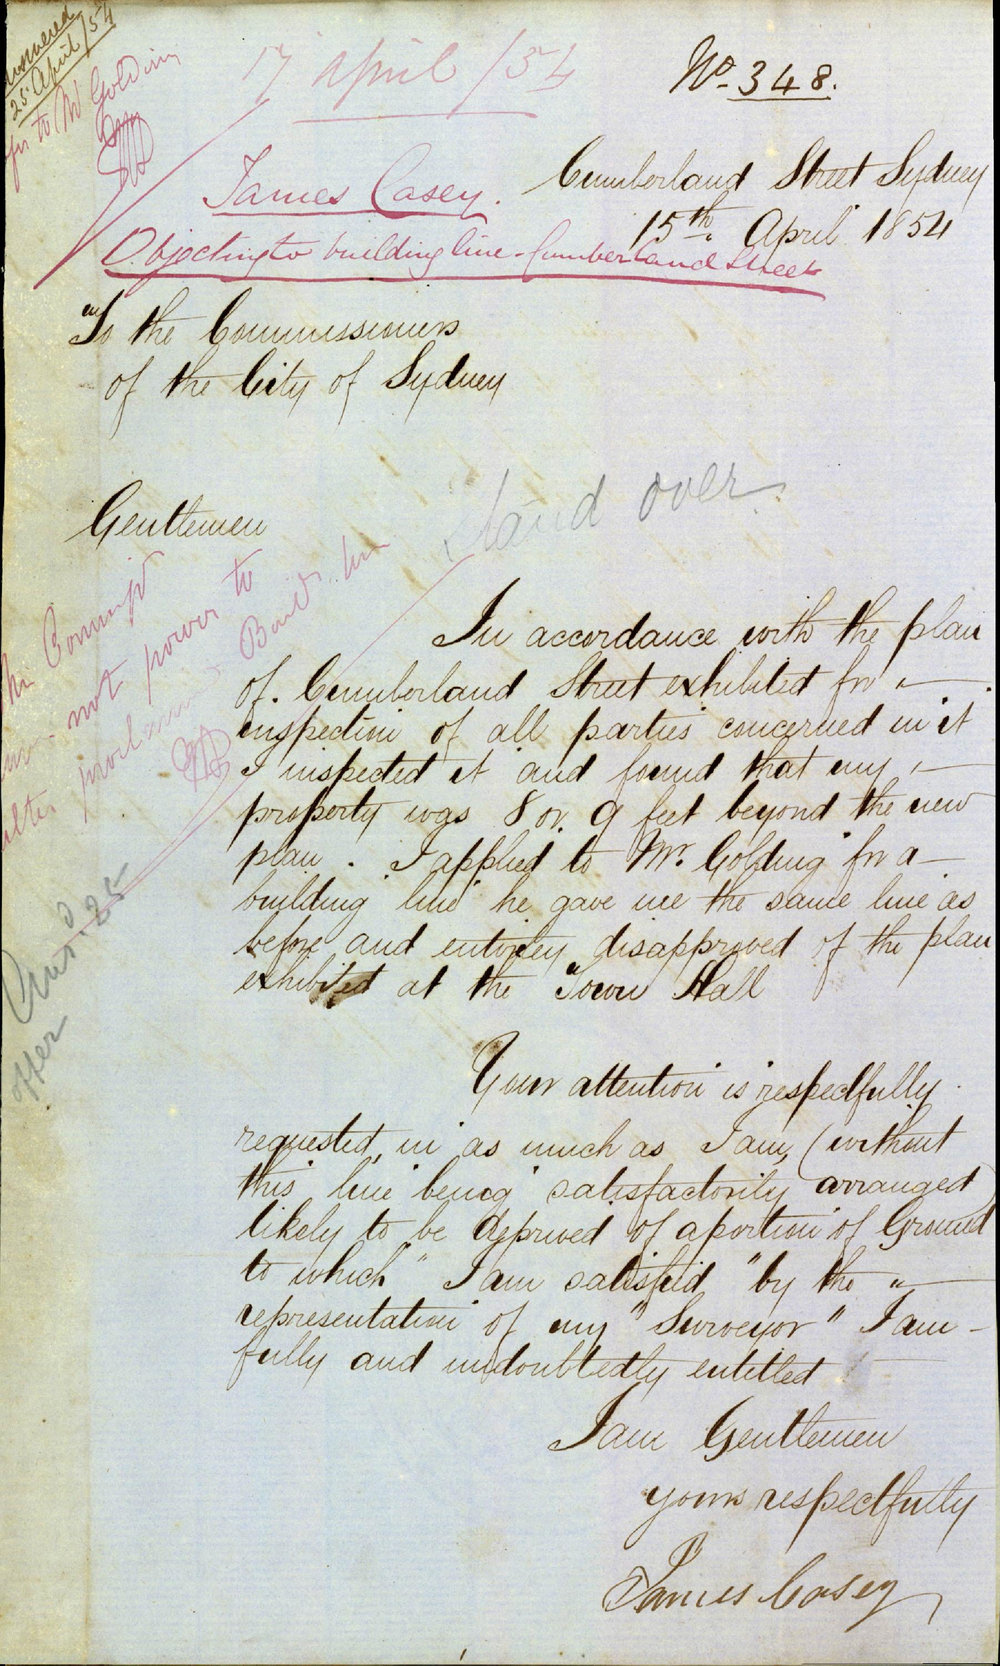 Answered
25 April/54
for to Mr Golding
17 April /54
No. 348.
James Casey.
Objecting to building line - Cumberland Street
Cumberland Street Sydney
15th April 1854
"To the Commissioners
of the City of Sydney
Gentlemen
Stand over
not power to
alter proclaimed Build. line
Ansd. 25
offer
In accordance with the plan
of. Cumberland Street exhibited for
inspection of all parties concerned in it
I inspected it and found that my
property was 8 or 9 feet beyond the new
plan. I applied to "Mr. Golding" for a
building line he gave me the same line as
before and entirley disapproved of the plan
exhibited at the "Town Hall
Your attention is respectfully
requested, in as much as I am, (without
this line being satisfactorily arranged)
likely to be deprived of a portion of Ground
to which "I am satisfied "by the "
representation of my "Surveyor" I am
fully and undoubtedly entitled
I am Gentlemen
yours respectfully
James Casey